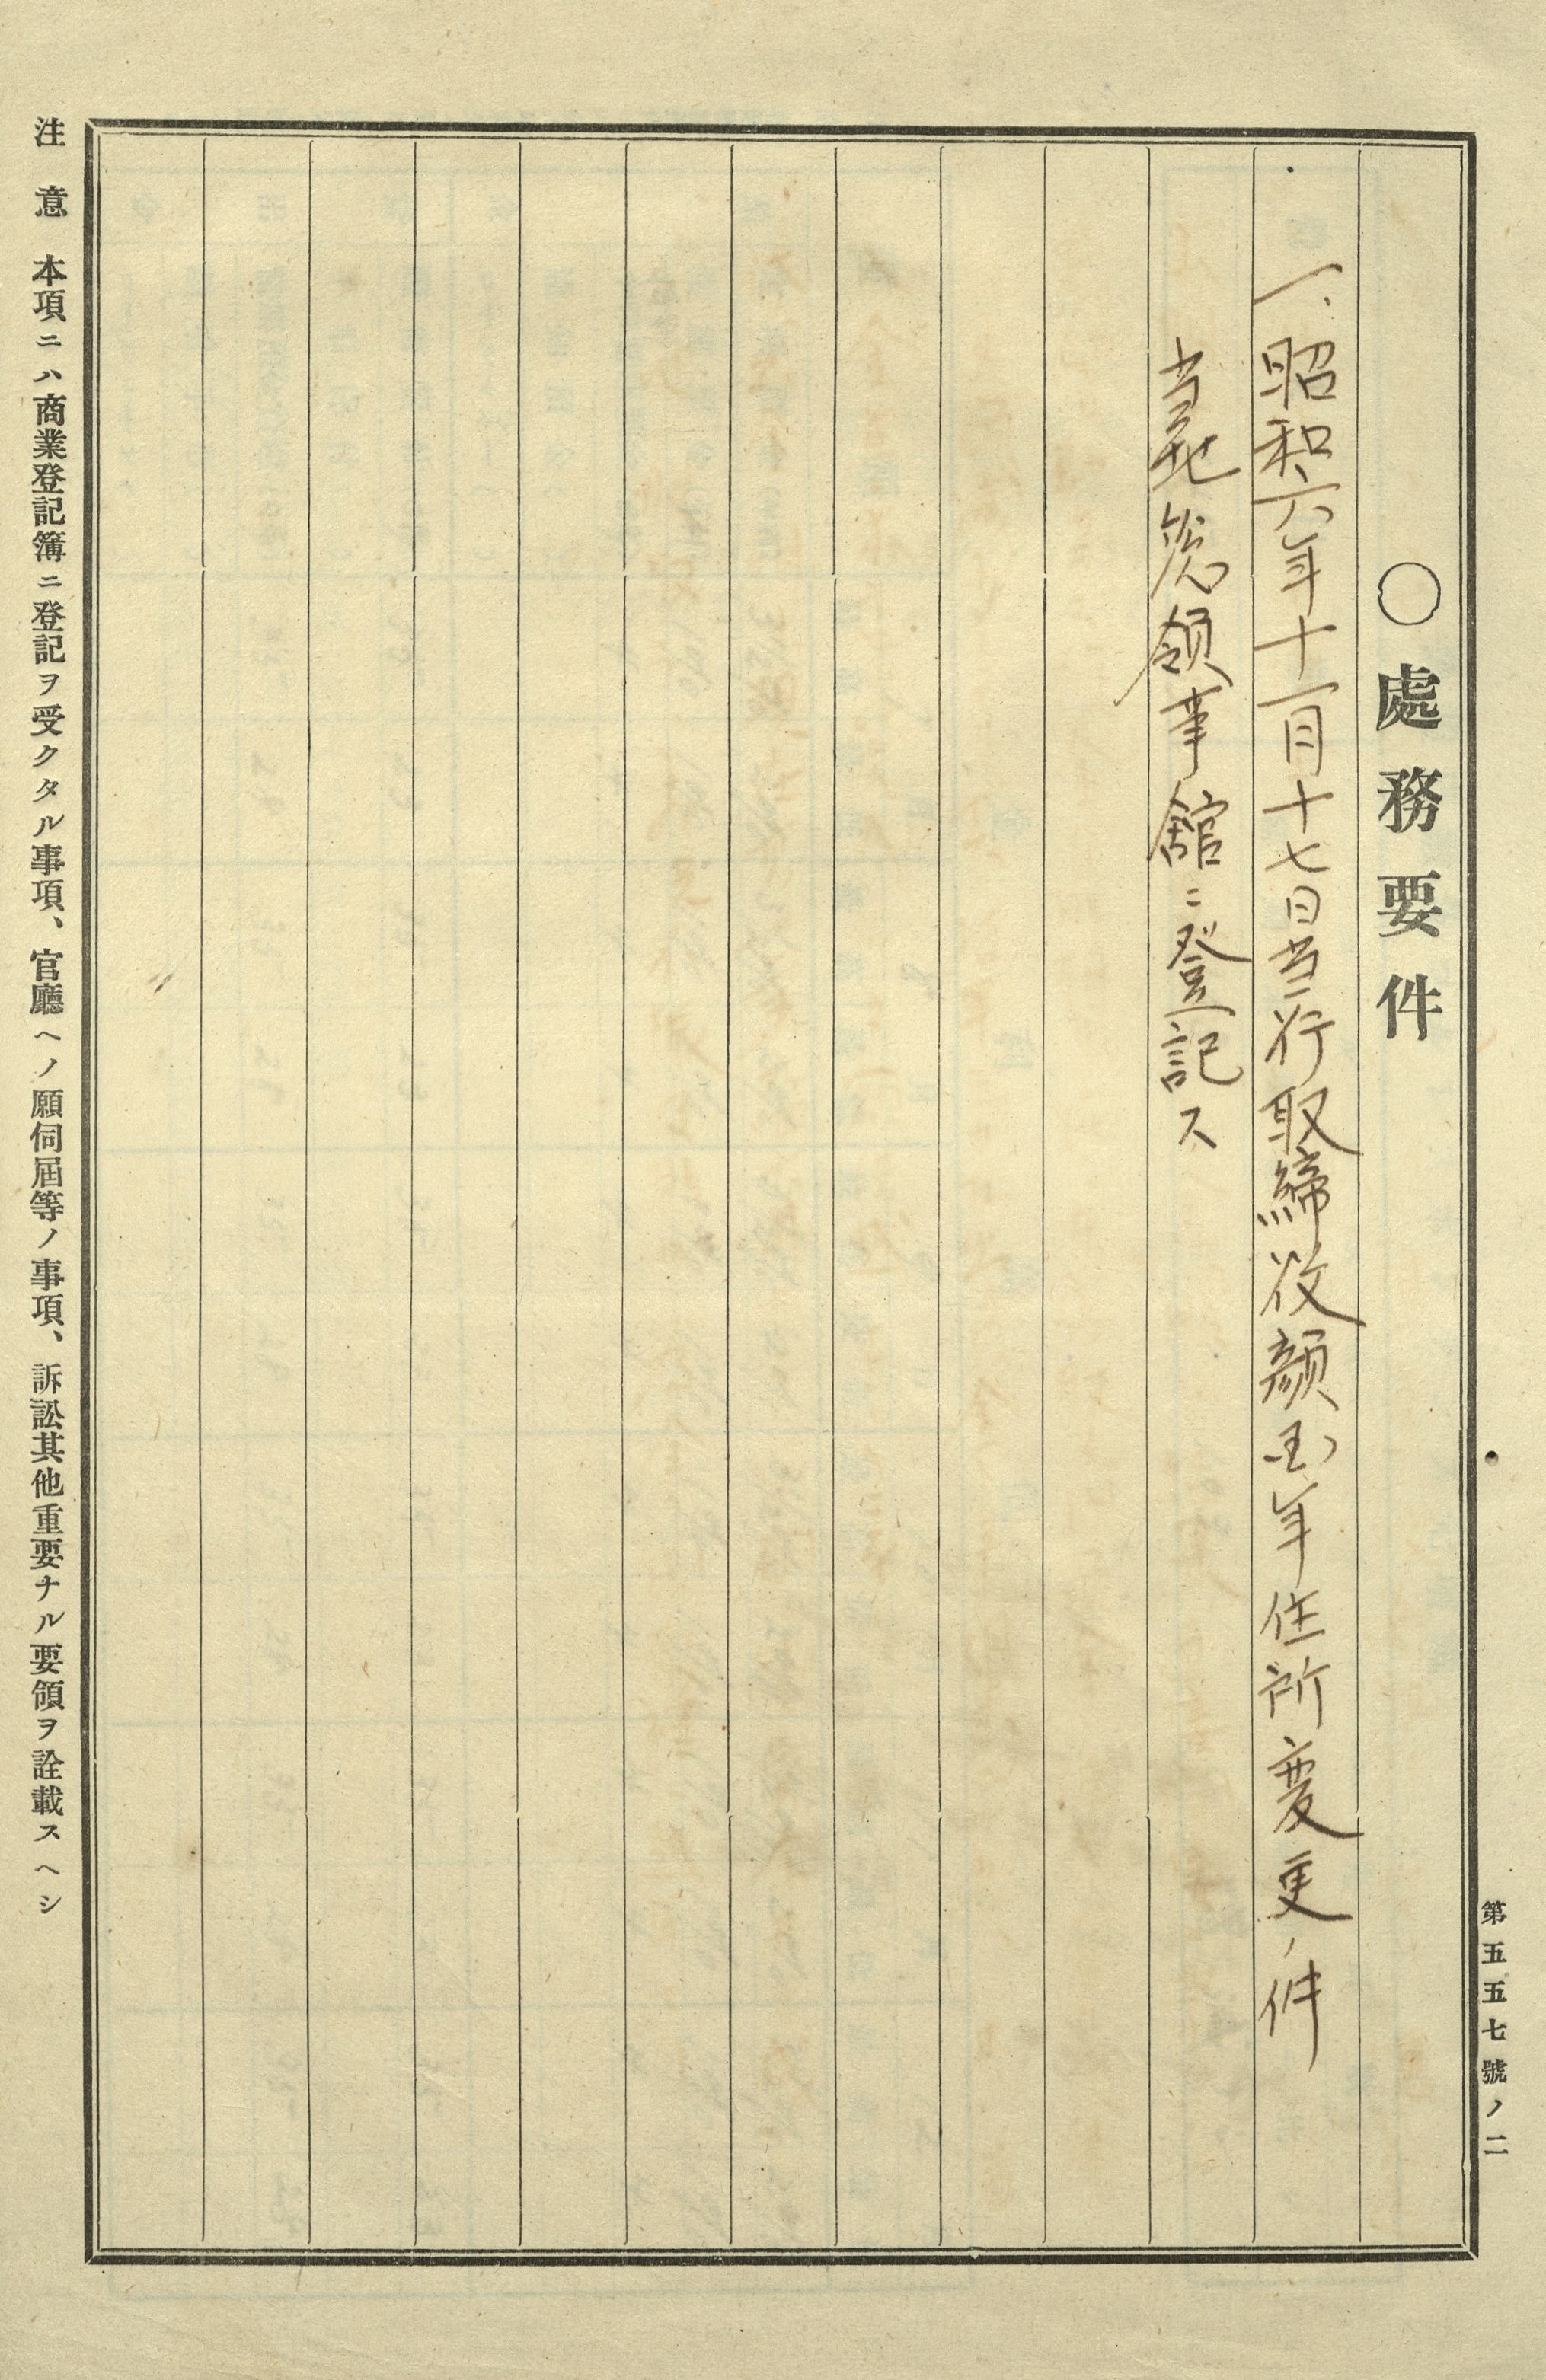 第五五七號ノ二
○處務要件
一、昭和六年十一月十七日当行取締役顔国年住所変更ノ件
当地総領事館ニ登記ス
注意 本項ニハ商業登記簿ニ登記ヲ受クタル事項、官廳ヘノ願伺屆等ノ事項、訴訟其他重要ナル要領ヲ詮載スヘシ